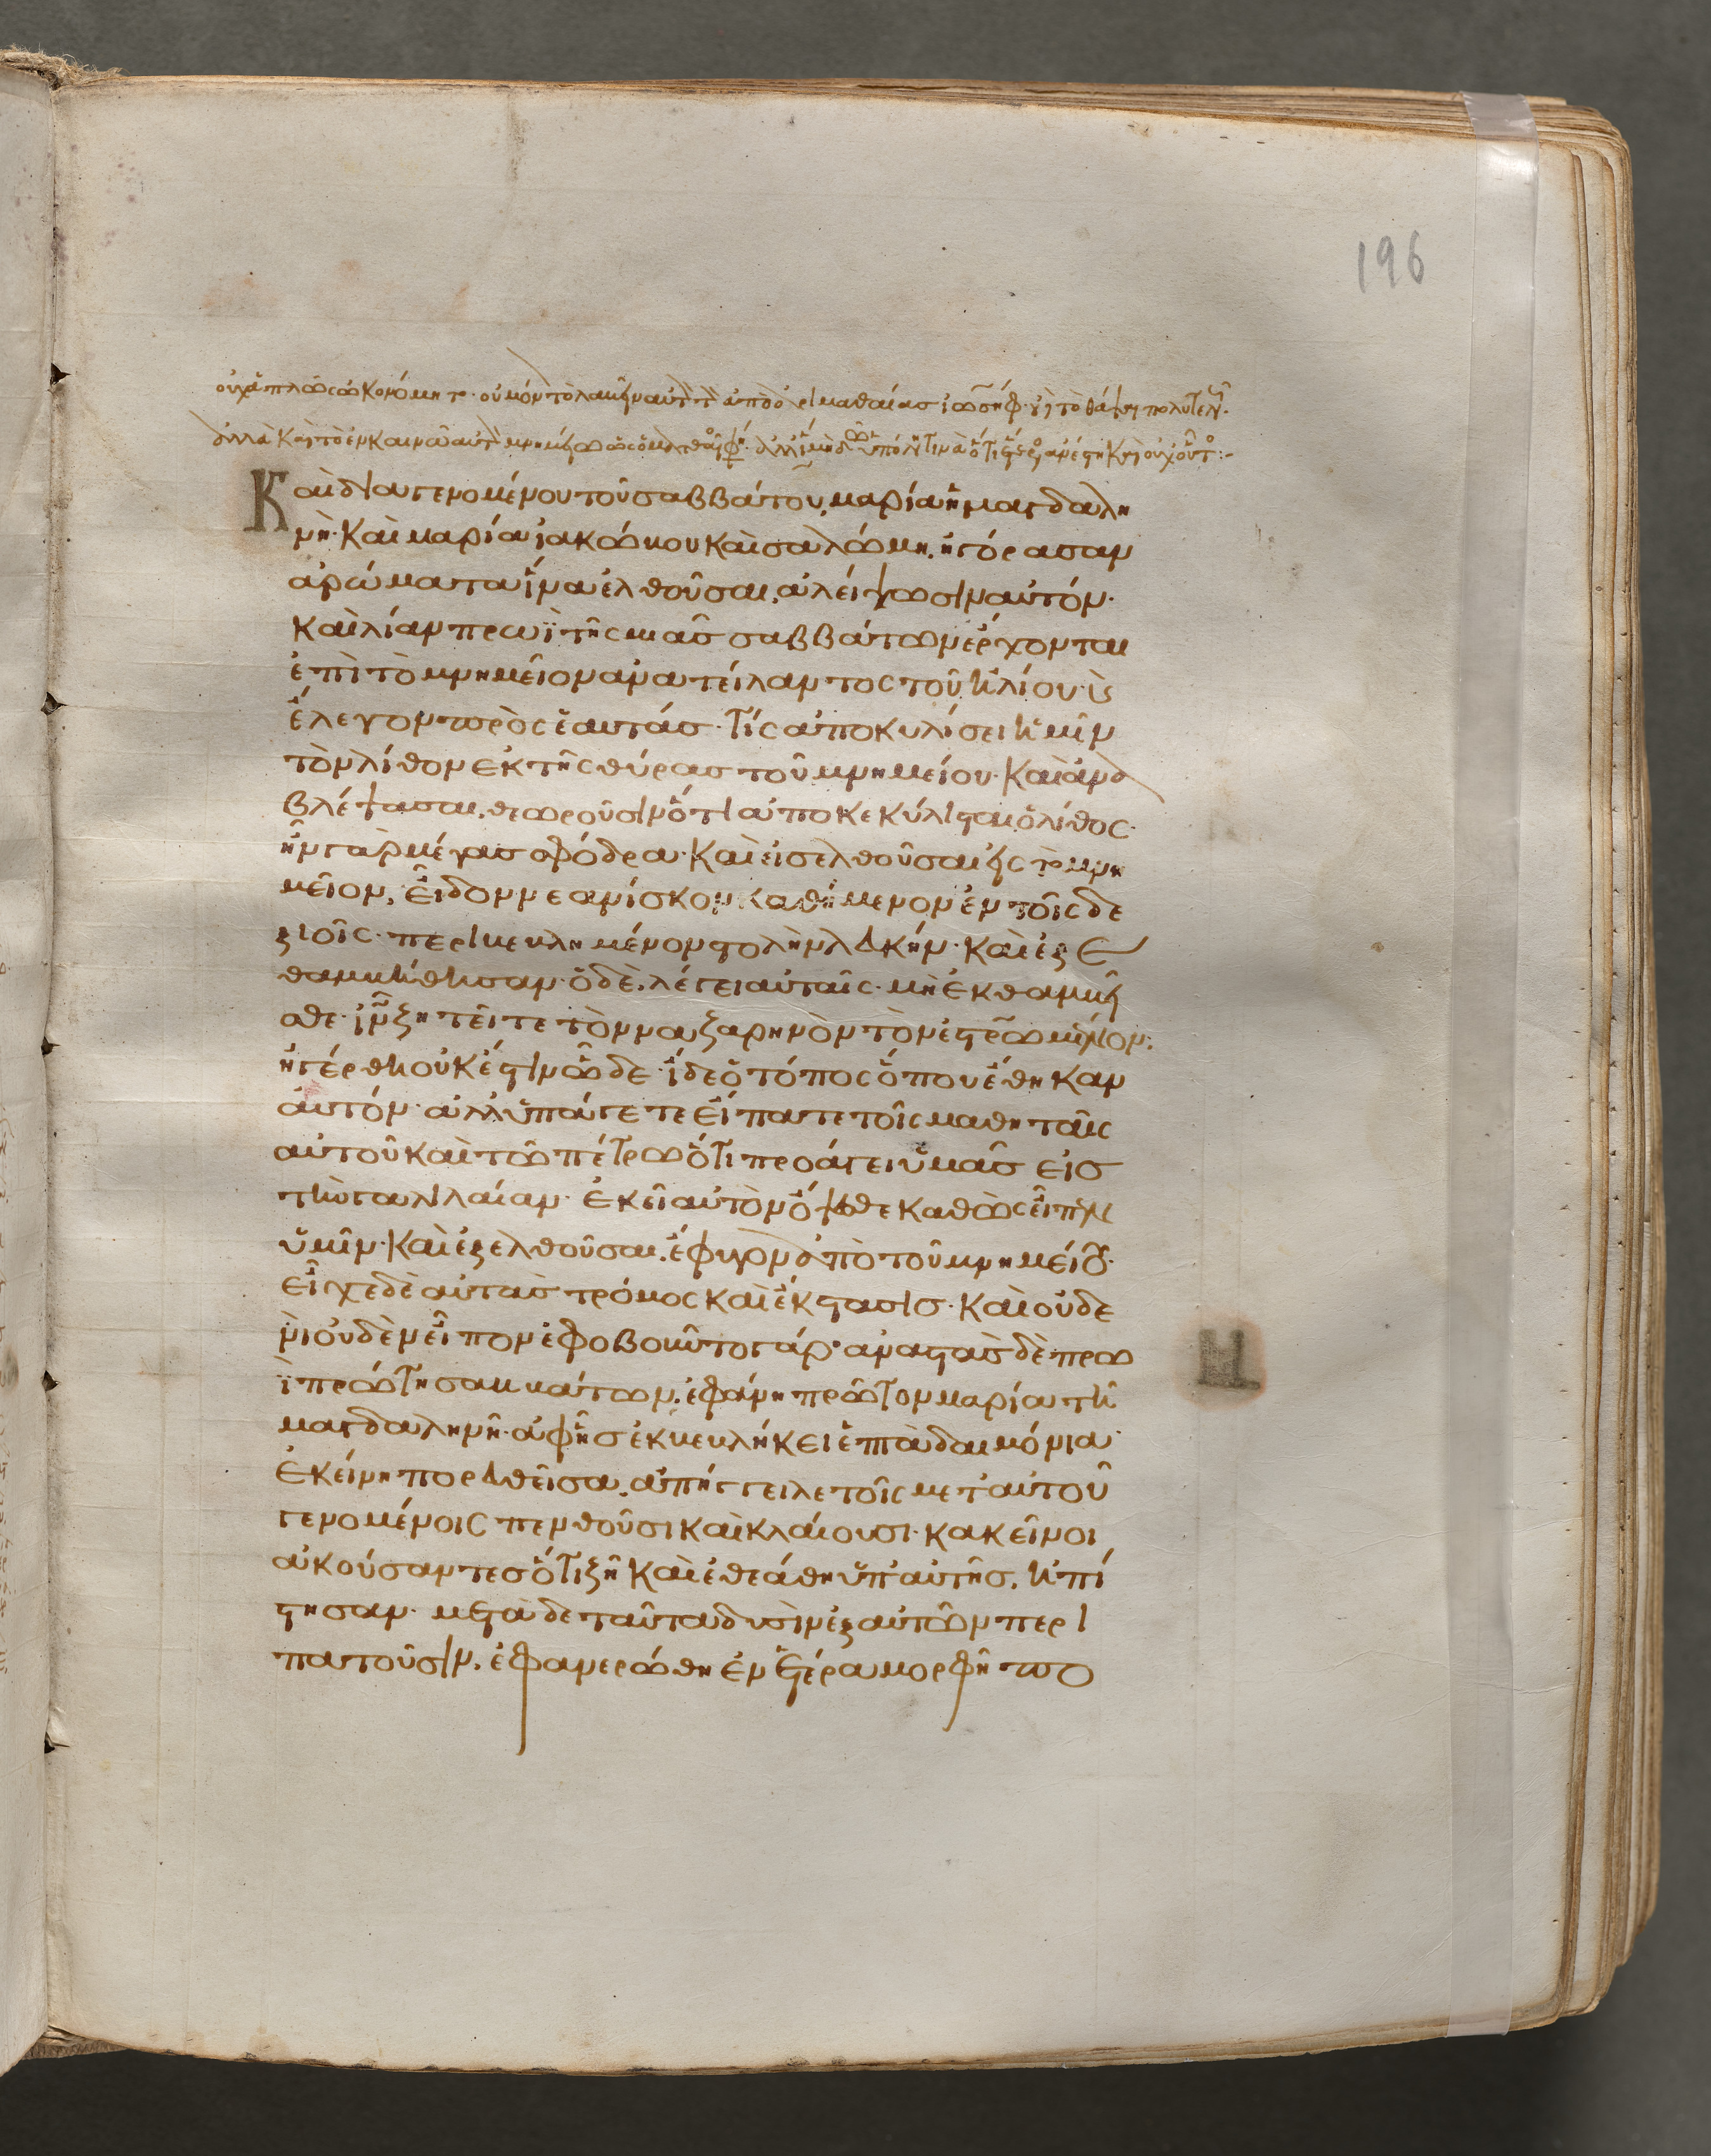 196
οὐχ ἁπλῶς ὠκονόμητο
Καὶ διαγενομένου τοῦ σαββάτου, μαρία ἡ μαγδαλη
νὴ· καὶ μαρία ἰακώβου καὶ σαλώμη, ἠγόρασαν
ἀρώματα ἵνα ἐλθοῦσαι, ἀλείψωσιν αὐτόν·
καὶ λίαν πρωῒ τῆς μιᾶς σαββάτων ἔρχονται
ἐπὶ τὸ μνημεῖον ἀνατείλαντος τοῦ ἡλίου· ϗ
ἔλεγον πρὸς ἑαυτάς· τίς ἀποκυλίσει ἡμῖν
τὸν λίθον ἐκ τῆς θύρας τοῦ μνημείου· καὶ ἀνα
βλέψασαι, θεωροῦσιν ὅτι ἀποκεκύλισται ὁ λίθος·
ἦν γὰρ μέγας σφόδρα· καὶ εἰσελθοῦσαι εἰς τὸ μνη
μεῖον, εἶδον νεανίσκον καθήμενον ἐν τοῖς δε
ξιοῖς· περιβεβλημένον στολὴν λευκήν· καὶ ἐξε
θαμβήθησαν· ὁ δὲ, λέγει αὐταῖς· μὴ ἐκθαμβεῖ
σθε· ἰν̅ ζητεῖτε τὸν ναζαρηνὸν τὸν ἐστρωμένον·
ἠγέρθη οὐκ ἔστιν ὧδε· ἴδε ὁ τόπος ὅπου ἔθηκαν
αὐτόν· ἀλλ' ὑπάγετε εἴπατε τοῖς μαθηταῖς
αὐτοῦ καὶ τῷ πέτρῳ ὅτι προάγει ὑμᾶς εἰς
τὴν γαλιλαίαν· ἐκεῖ αὐτὸν ὄψεσθε καθὼς εἶπεν
ὑμῖν· καὶ ἐξελθοῦσαι, ἔφυγον ἀπὸ τοῦ μνημείου·
εἶχε δὲ αὐτὰς τρόμος καὶ ἔκστασις· καὶ οὐδε
νὶ οὐδὲν εἶπον ἐφοβοῦντο γάρ· ἀναστὰς δὲ πρω
ῒ πρώτῃ σαββάτων, ἐφάνη πρῶτον μαρίᾳ τῇ
μαγδαληνῇ· ἀφ' ἧς ἐκβεβλήκει ἑπτὰ δαιμόνια·
ἐκείνη πορευθεῖσα, ἀπήγγειλε τοῖς μετ' αὐτοῦ
γενομένοις πενθοῦσι καὶ κλαίουσι· κακεῖνοι
ἀκούσαντες ὅτι ζῇ καὶ ἐθεάθη ὑπ' αὐτῆς, ἠπί
στησαν· μετὰ δὲ ταῦτα δυσὶν ἐξ αὐτῶν περι
πατοῦσιν, ἐφανερώθη ἐν ἑτέρᾳ μορφῇ πο